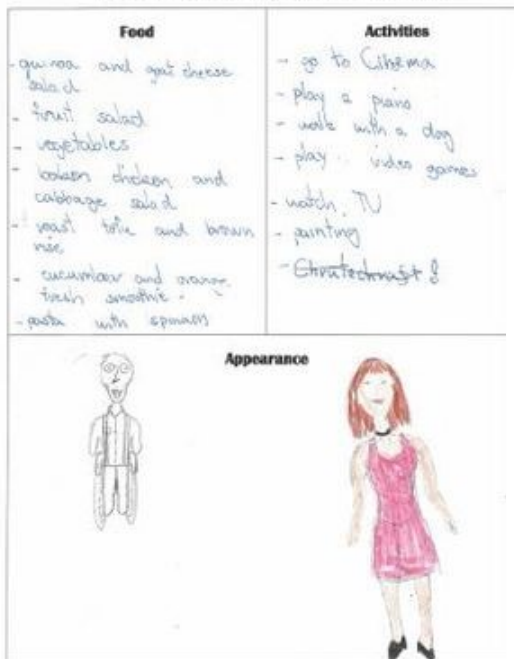 Food
- quinoa and goat cheese
salad
- fruit salad
- vegetables
- chicken and
cabbage salad
- roast tofu and brown
rise
- and orange
fresh smoothie
- pasta with
Activities
- go to Cinema
- play a piano
- walk with a dog
- play video games
- watch TV
- painting
Appearance